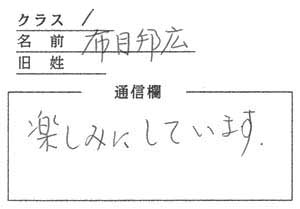 クラス 1
名前 布目邦広
旧姓
通信欄
楽しみにしています.